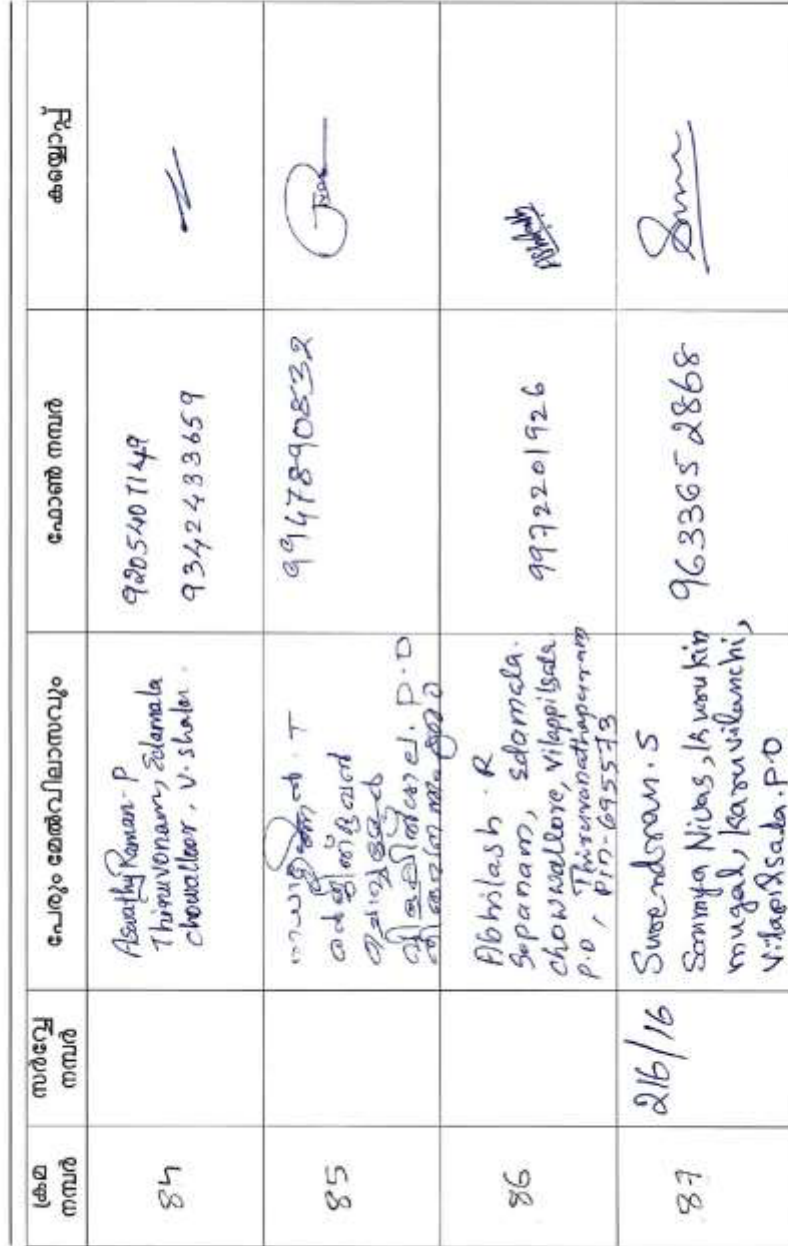 ക്രമ നമ്പർ
സർവ്വേ നമ്പർ
പേരും മേൽവിലാസവും
ഫോൺ നമ്പർ
കൈയ്യൊപ്പ്
84
Aswathy Raman. P
Thiruvonam, Edamala
chowalloor, V. shala.
9205407149
9342433659
85
T
P.O
9947890832
86
Abhilash. R
Sopanam, Edamala.
chowwallore, Vilappilsala
P.O, Thiruvananthapuram
Pin-695573
9972201926
Abhilash
87
216/16
Surendran. S
Soumya Nivas, Kurukin
mugal, Karuvilanchi,
Vilapilsala. P.O
963365 2868